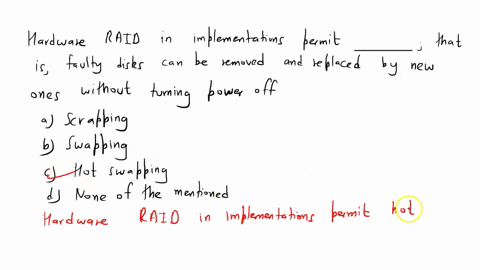 Hardware RAID in implementations permit ______, that
is, faulty disks can be removed and replaced by new
ones without turning power off
a) Scrapping
b) Swapping
c) Hot swapping
d) None of the mentioned
Hardware RAID in implementations permit hot